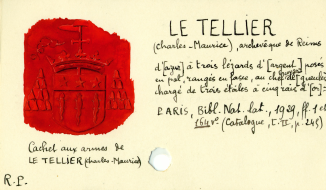 LE TELLIER
(Charles-Maurice), archevêque de Reims
d'[azur] à trois lézards d'[argent] posés
en pal, rangés en fasce, au chef de [gueules]
chargé de trois étoiles à cinq rais d'[or]
PARIS, Bibl. Nat. lat., 1929, ff. 1 et
164v° (Catalogue, t. II, p. 245)
Cachet aux armes de
LE TELLIER (Charles-Maurice)
R.P.